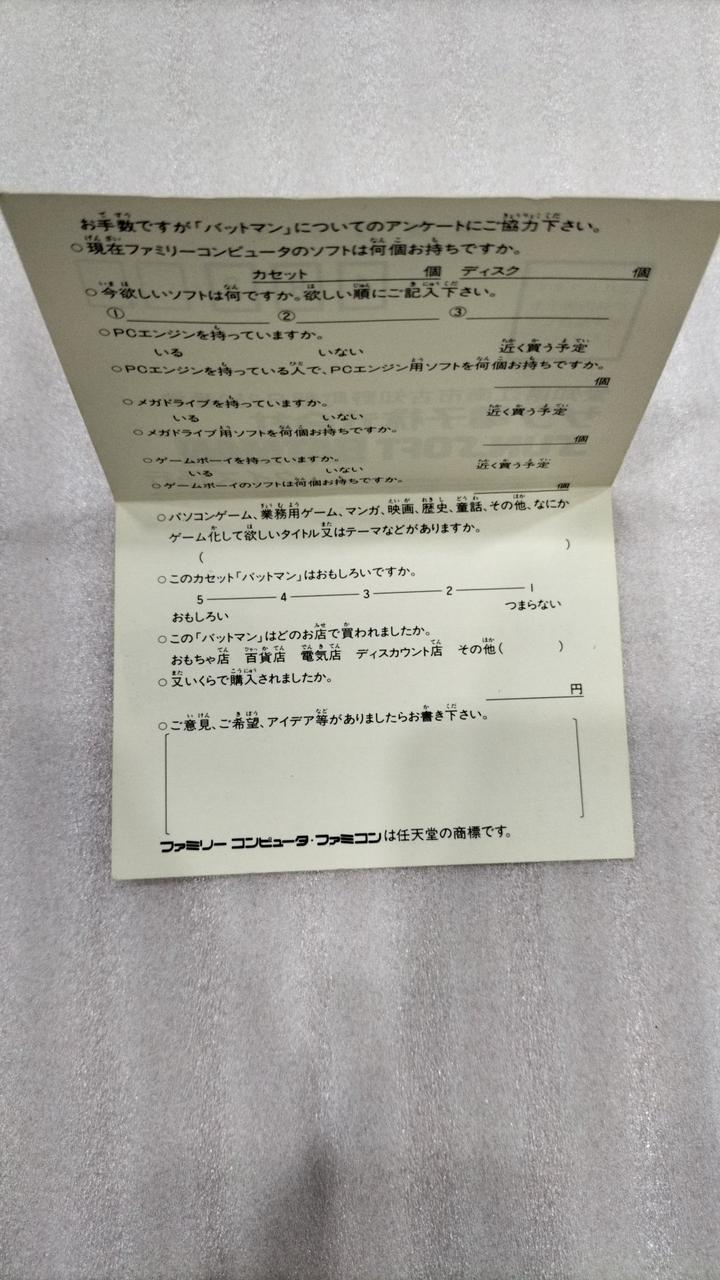 お手数ですが「バットマン」についてのアンケートにご協力下さい。
○現在ファミリーコンピュータのソフトは何個お持ちですか。
カセット　　　　　個　ディスク　　　　　個
○今欲しいソフトは何ですか。欲しい順にご記入下さい。
①　　　　　②　　　　　③
○PCエンジンを持っていますか。
いる　　　　　いない　　　　　近く買う予定
○PCエンジンを持っている人で、PCエンジン用ソフトを何個お持ちですか。
個
○メガドライブを持っていますか。
いる　　　　　いない　　　　　近く買う予定
○メガドライブ用ソフトを何個お持ちですか。
個
○ゲームボーイを持っていますか。
いる　　　　　いない　　　　　近く買う予定
○ゲームボーイのソフトは何個お持ちですか。
個
○パソコンゲーム、業務用ゲーム、マンガ、映画、歴史、童話、その他、なにか
ゲーム化して欲しいタイトル又はテーマなどがありますか。
(　　　　　)
○このカセット「バットマン」はおもしろいですか。
5 ― 4 ― 3 ― 2 ― 1
おもしろい　　　　　つまらない
○この「バットマン」はどのお店で買われましたか。
おもちゃ店　百貨店　電気店　ディスカウント店　その他(　　　)
○又いくらで購入されましたか。
円
○ご意見、ご希望、アイデア等がありましたらお書き下さい。
ファミリーコンピュータ・ファミコンは任天堂の商標です。